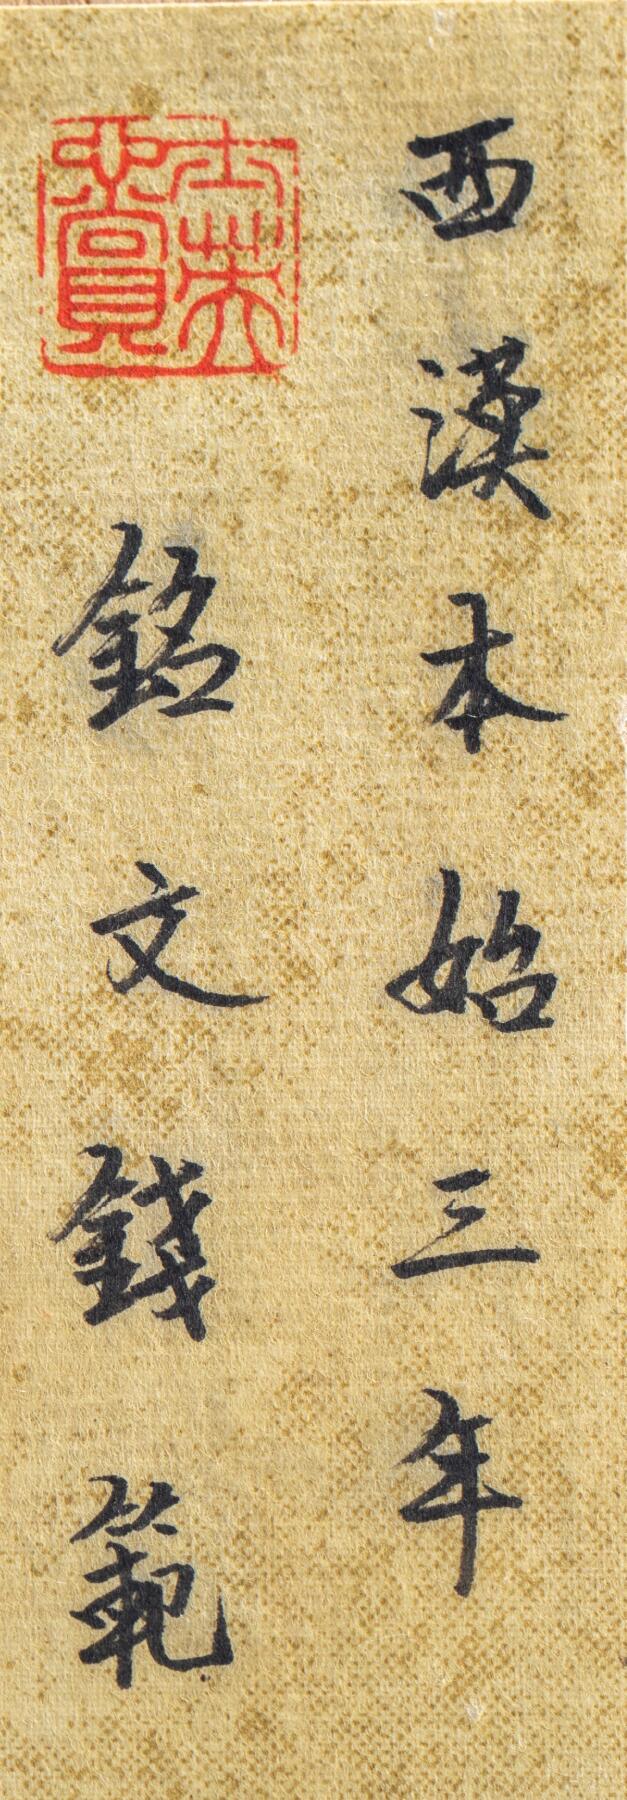 西漢本始三年
銘文錢範